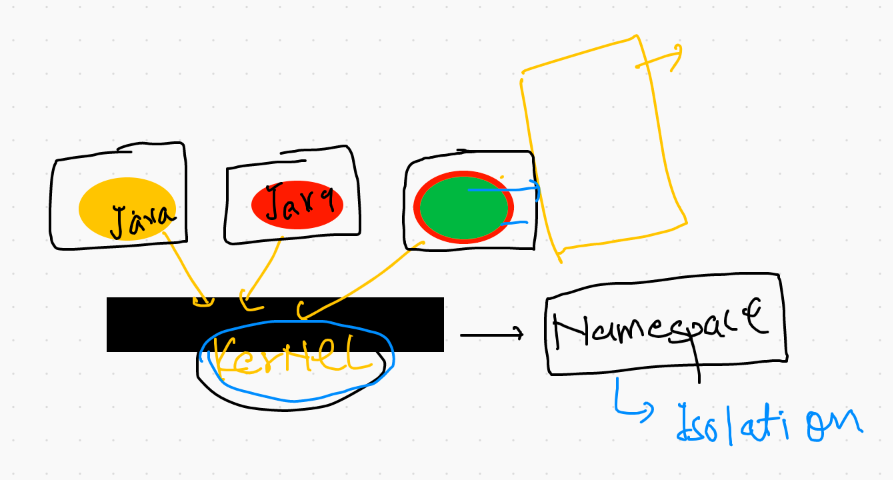 Java
Java
KerNEL
Namespace
Isolation